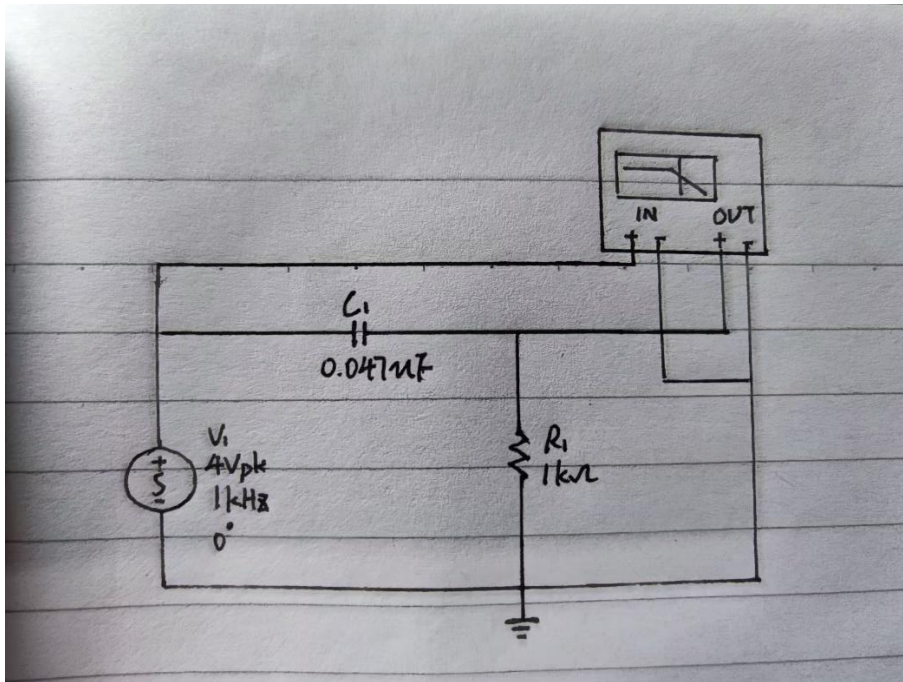 IN OUT
+ - + -
C1
0.047uF
V1
4Vpk
1kHz
0°
+
-
R1
1kΩ